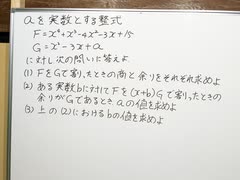 aを実数とする整式
F=x⁴+x³-4x²-3x+15
G=x²-3x+a
に対し次の問いに答えよ
(1) FをGで割ったときの商と余りをそれぞれ求めよ
(2) ある実数bに対してFを(x+b)Gで割ったときの
余りがGであるときaの値を求めよ
(3) 上の(2)におけるbの値を求めよ